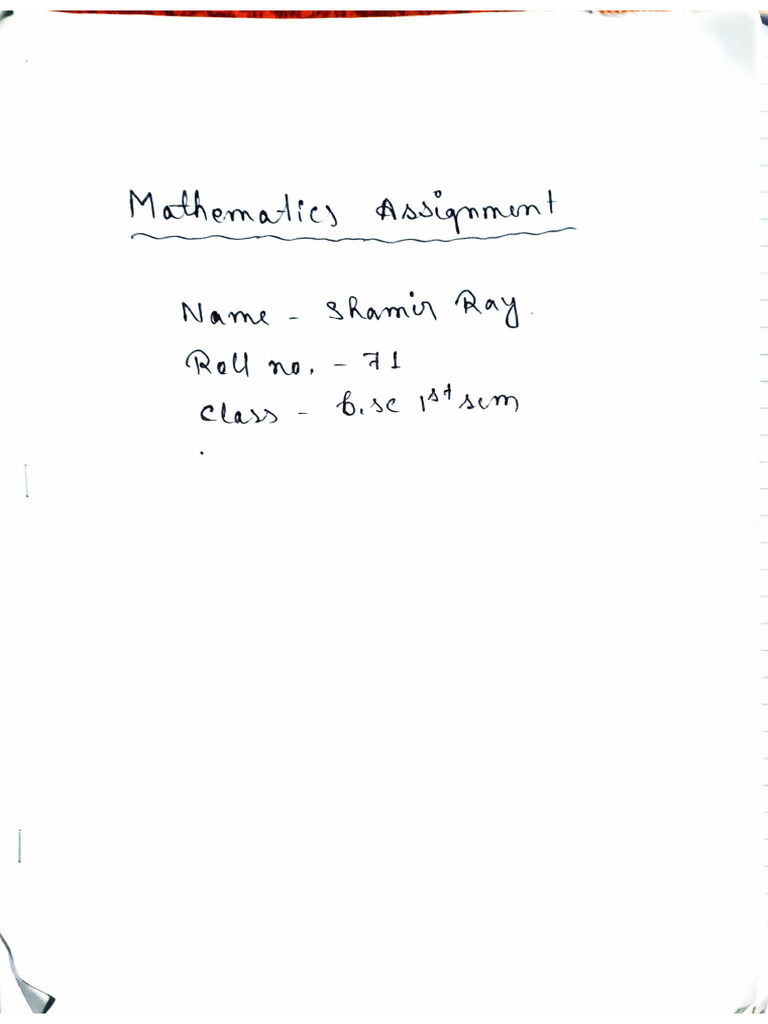 Mathematics Assignment
Name - Shamir Ray.
Roll no. - 71
Class - B.sc 1st sem